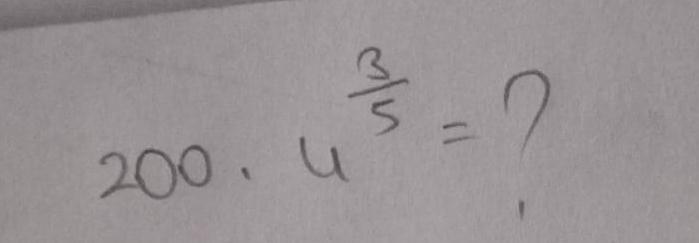 200 . 4^{3/5} = ?